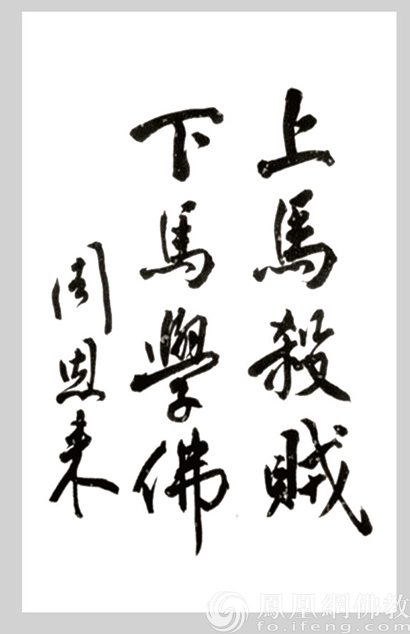 上馬殺賊
下馬學佛
周恩来
鳳凰網佛教
fo.ifeng.com